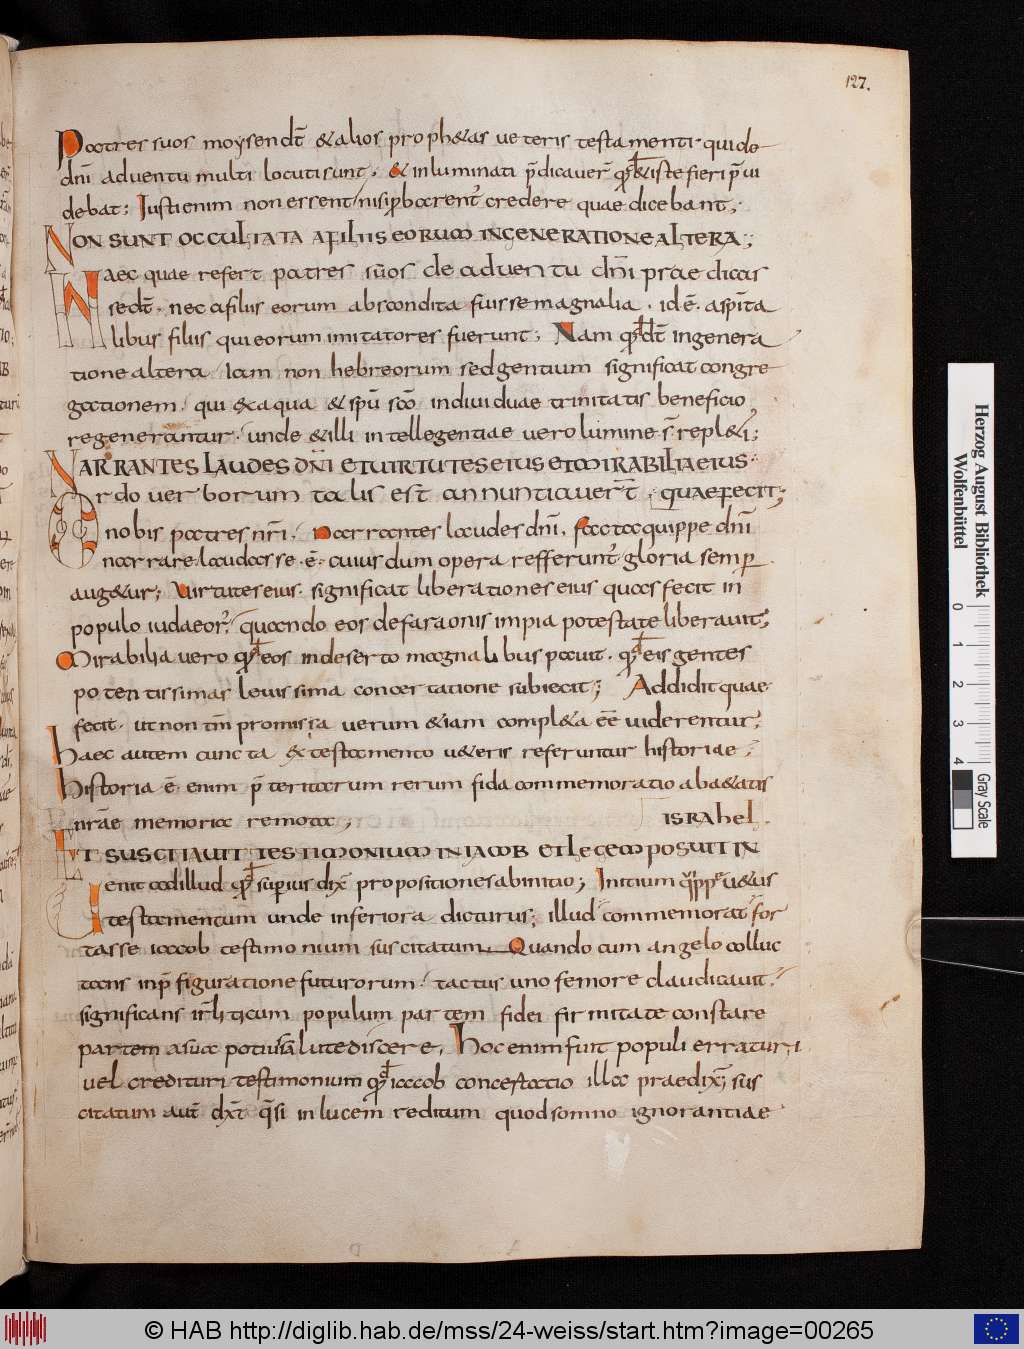 127.
Patres suos moysen dt̄ &alios proph&as ueteris testamenti · quide
dn̄i aduentu multi locuti sunt, & inluminati p̄dicauer̄ qđ &iste fieri p̄ui
debat; Iusti enim non essent / nisi ꝑhocrent᷑ credere quae dicebant;
NON SUNT OCCULTATA AFILIIS EORUM INGENERATIONE ALTERA;
Haec quae refert patres suos de aduentu dn̄i praedicas
sedt̄ · nec afiliis eorum abscondita fuisse magnalia · idē · aspīta
libus filiis qui eorum imitatores fuerunt; Nam qđ dt̄ ingenera
tione altera / Iam non hebreorum sed gentium significat congre
gationem / qui exaqua &spū scō indiuiduae trinitatis beneficio
regenerantur · unde &illi intellegentiae uero lumine s̄ repl&i;
NARRANTES LAUDES DN̄I ETUIRTUTES EIUS ETMIRABILIA EIUS
Ordo uerborum talis est annuntiauer̄t · QUAE FECIT;
nobis patres nr̄i / Narrantes laudes dn̄i. factaquippe dn̄i
narrare · laudasse · ē · cuius dum opera refferunt᷑ gloria semꝑ
aug&ur; Uirtutes eius · significat liberationes eius quas fecit in
populo iudaeor̄ / quando eos defaraonis impia potestate liberauit;
Mirabilia uero qđ eos indeserto magnalibus pauit · qđ eis gentes
potentissimas leuissima concertatione subiecit; Addidit quae
fecit · ut non tm̄ promissa uerum &iam compl&a eē uiderentur;
haec autem cuncta ex testamento u&eris referuntur historiae /
historia ē enim p̄teritarum rerum fida commemoratio aba&atis
nr̄ae memoria remota; ISRAhel.
ET SUSCITAUIT TESTIMONIUM INIACOB ETLEGEM POSUIT IN
Uenit adillud qđ suꝑius dix̄ propositiones abinitio; Initium quippe u&us
testamentum unde inferiora dicturus; illud commemorat for
tasse iacob testimonium suscitatum · Quando cum angelo colluc
tans inp̄figuratione futurorum / tactus uno femore claudicauit /
significans isrl̄iticum populum partem fidei firmitate constare
partem asua potius salute discere, hoc enim fuit populi erraturi
uel credituri testimonium qđ iacob concertatio illa praedix̄; sus
citatum aut̄ dx̄t q̄si in lucem reditum quod somno ignorantiae
Herzog August Bibliothek
Wolfenbüttel
0 1 2 3 4
Gray Scale
© HAB http://diglib.hab.de/mss/24-weiss/start.htm?image=00265